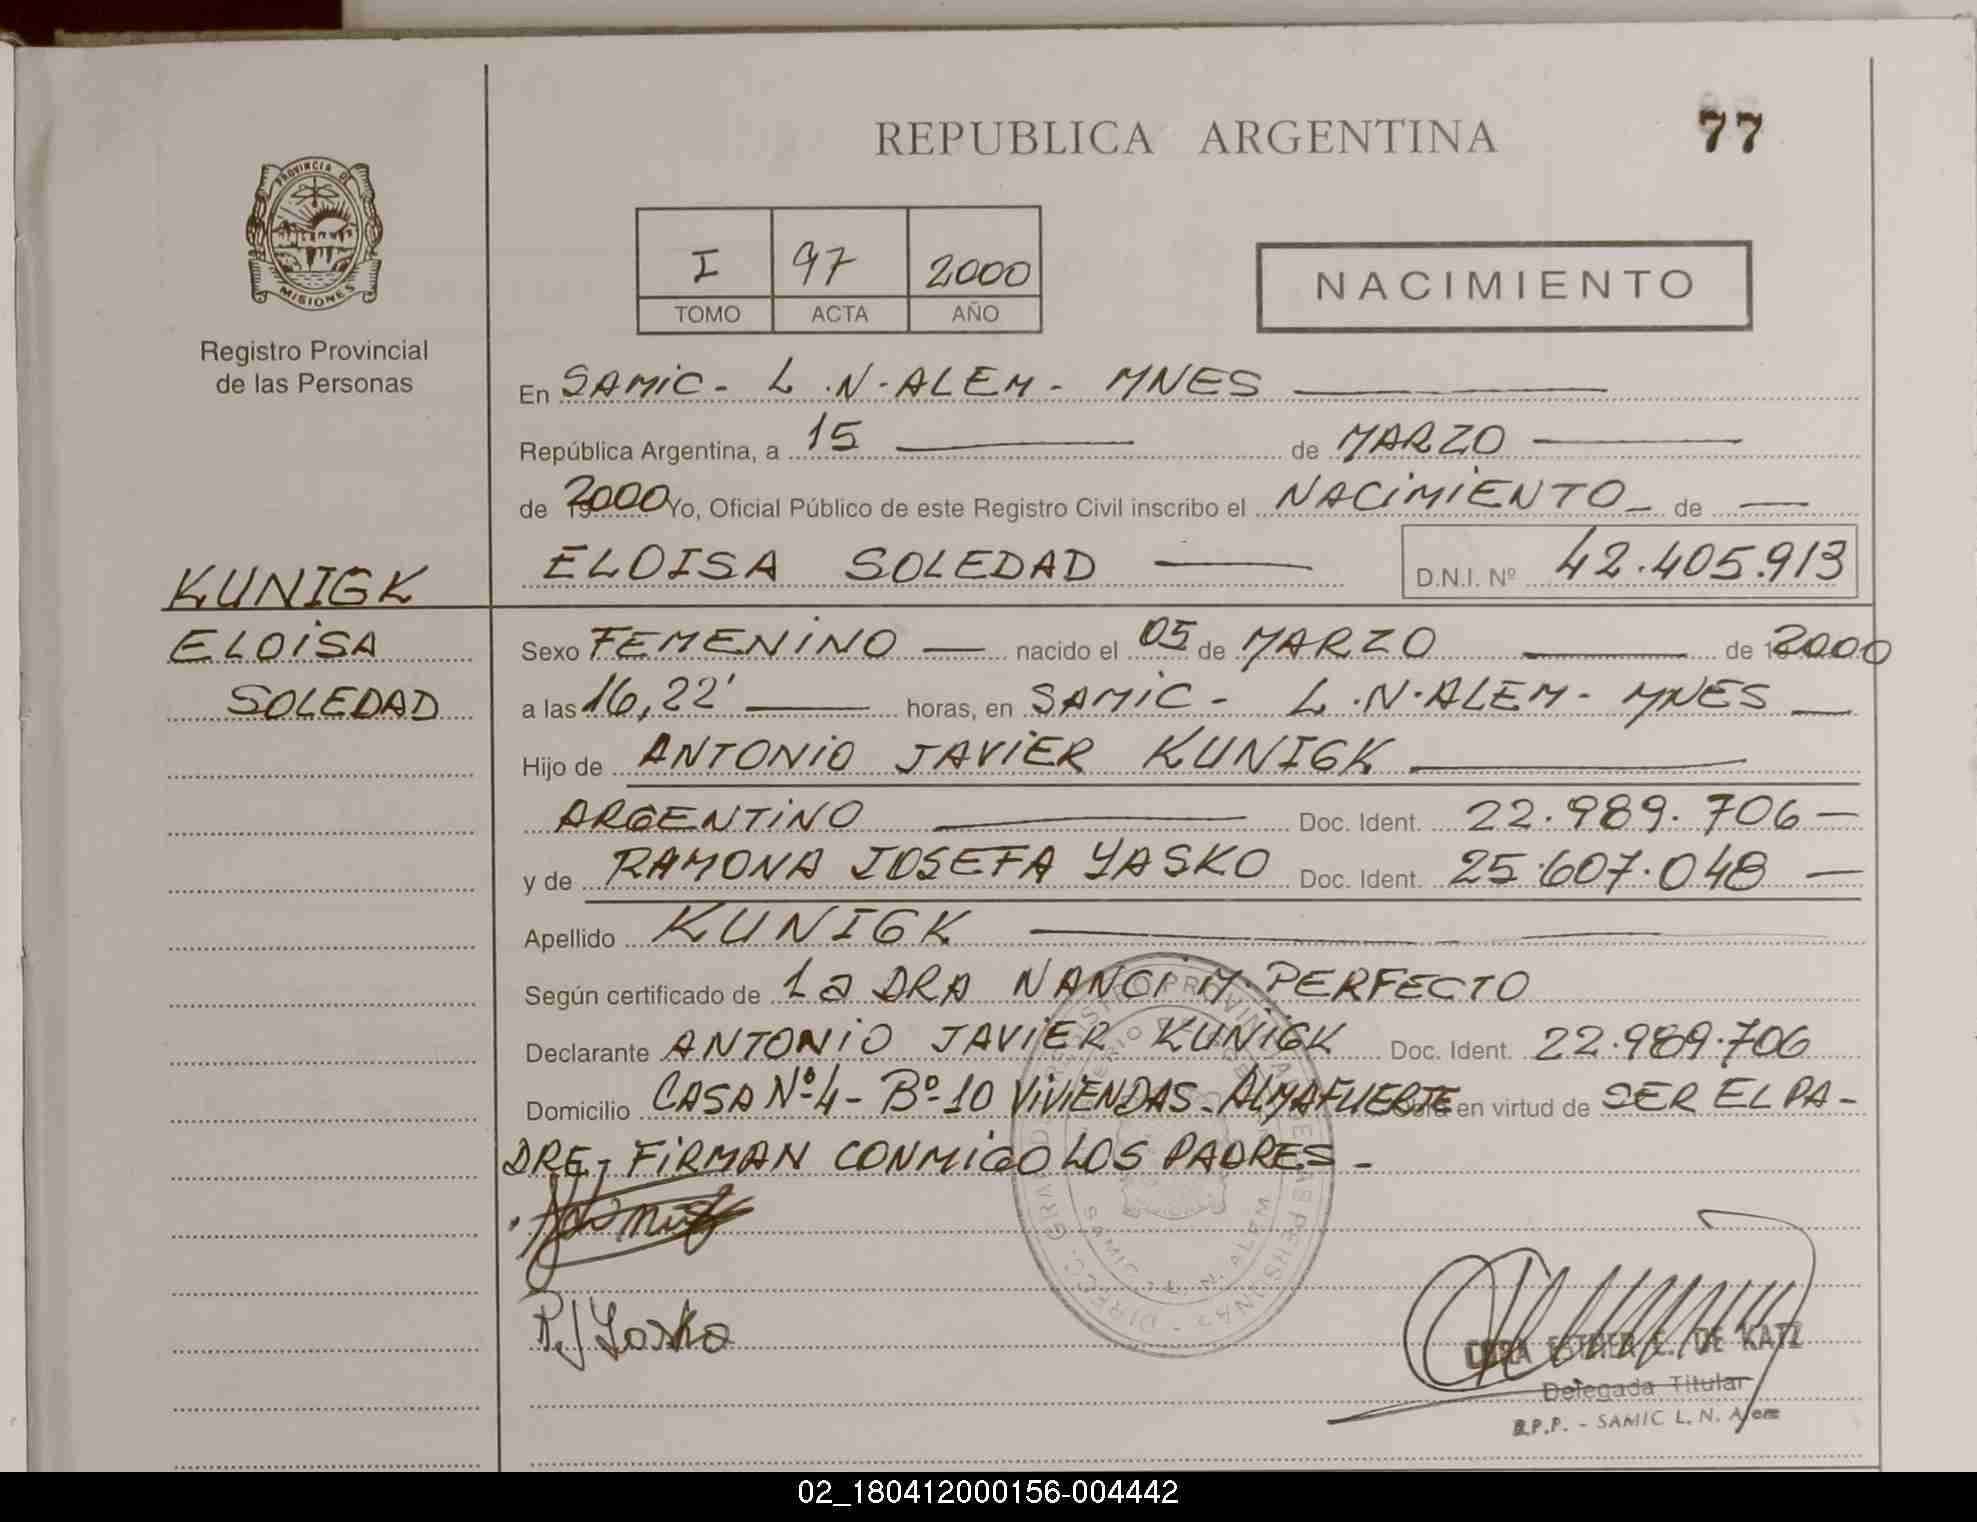 REPUBLICA ARGENTINA
77
PROVINCIA DE
MISIONES
Registro Provincial
de las Personas
I 97 2000
TOMO ACTA AÑO
NACIMIENTO
En SAMIC - L.N. ALEM - MNES
República Argentina, a 15 de MARZO
de 2000 Yo, Oficial Público de este Registro Civil inscribo el NACIMIENTO de
ELOISA SOLEDAD D.N.I. Nº 42.405.913
KUNIGK
ELOISA
SOLEDAD
Sexo FEMENINO nacido el 05 de MARZO de 2000
a las 16,22' horas, en SAMIC - L.N. ALEM - MNES
Hijo de ANTONIO JAVIER KUNIGK
ARGENTINO Doc. Ident. 22.989.706
y de RAMONA JOSEFA YASKO Doc. Ident. 25.607.048
Apellido KUNIGK
Según certificado de la DRA NANCI M. PERFECTO
Declarante ANTONIO JAVIER KUNIGK Doc. Ident. 22.989.706
Domicilio CASA Nº 4 - Bº 10 VIVIENDAS - ALMAFUERTE en virtud de SER EL PA-
DRE - FIRMAN CONMIGO LOS PADRES -
R J Yasko
ESTHER E. DE KATZ
Delegada Titular
R.P.P. - SAMIC L. N. Alem
02_180412000156-004442